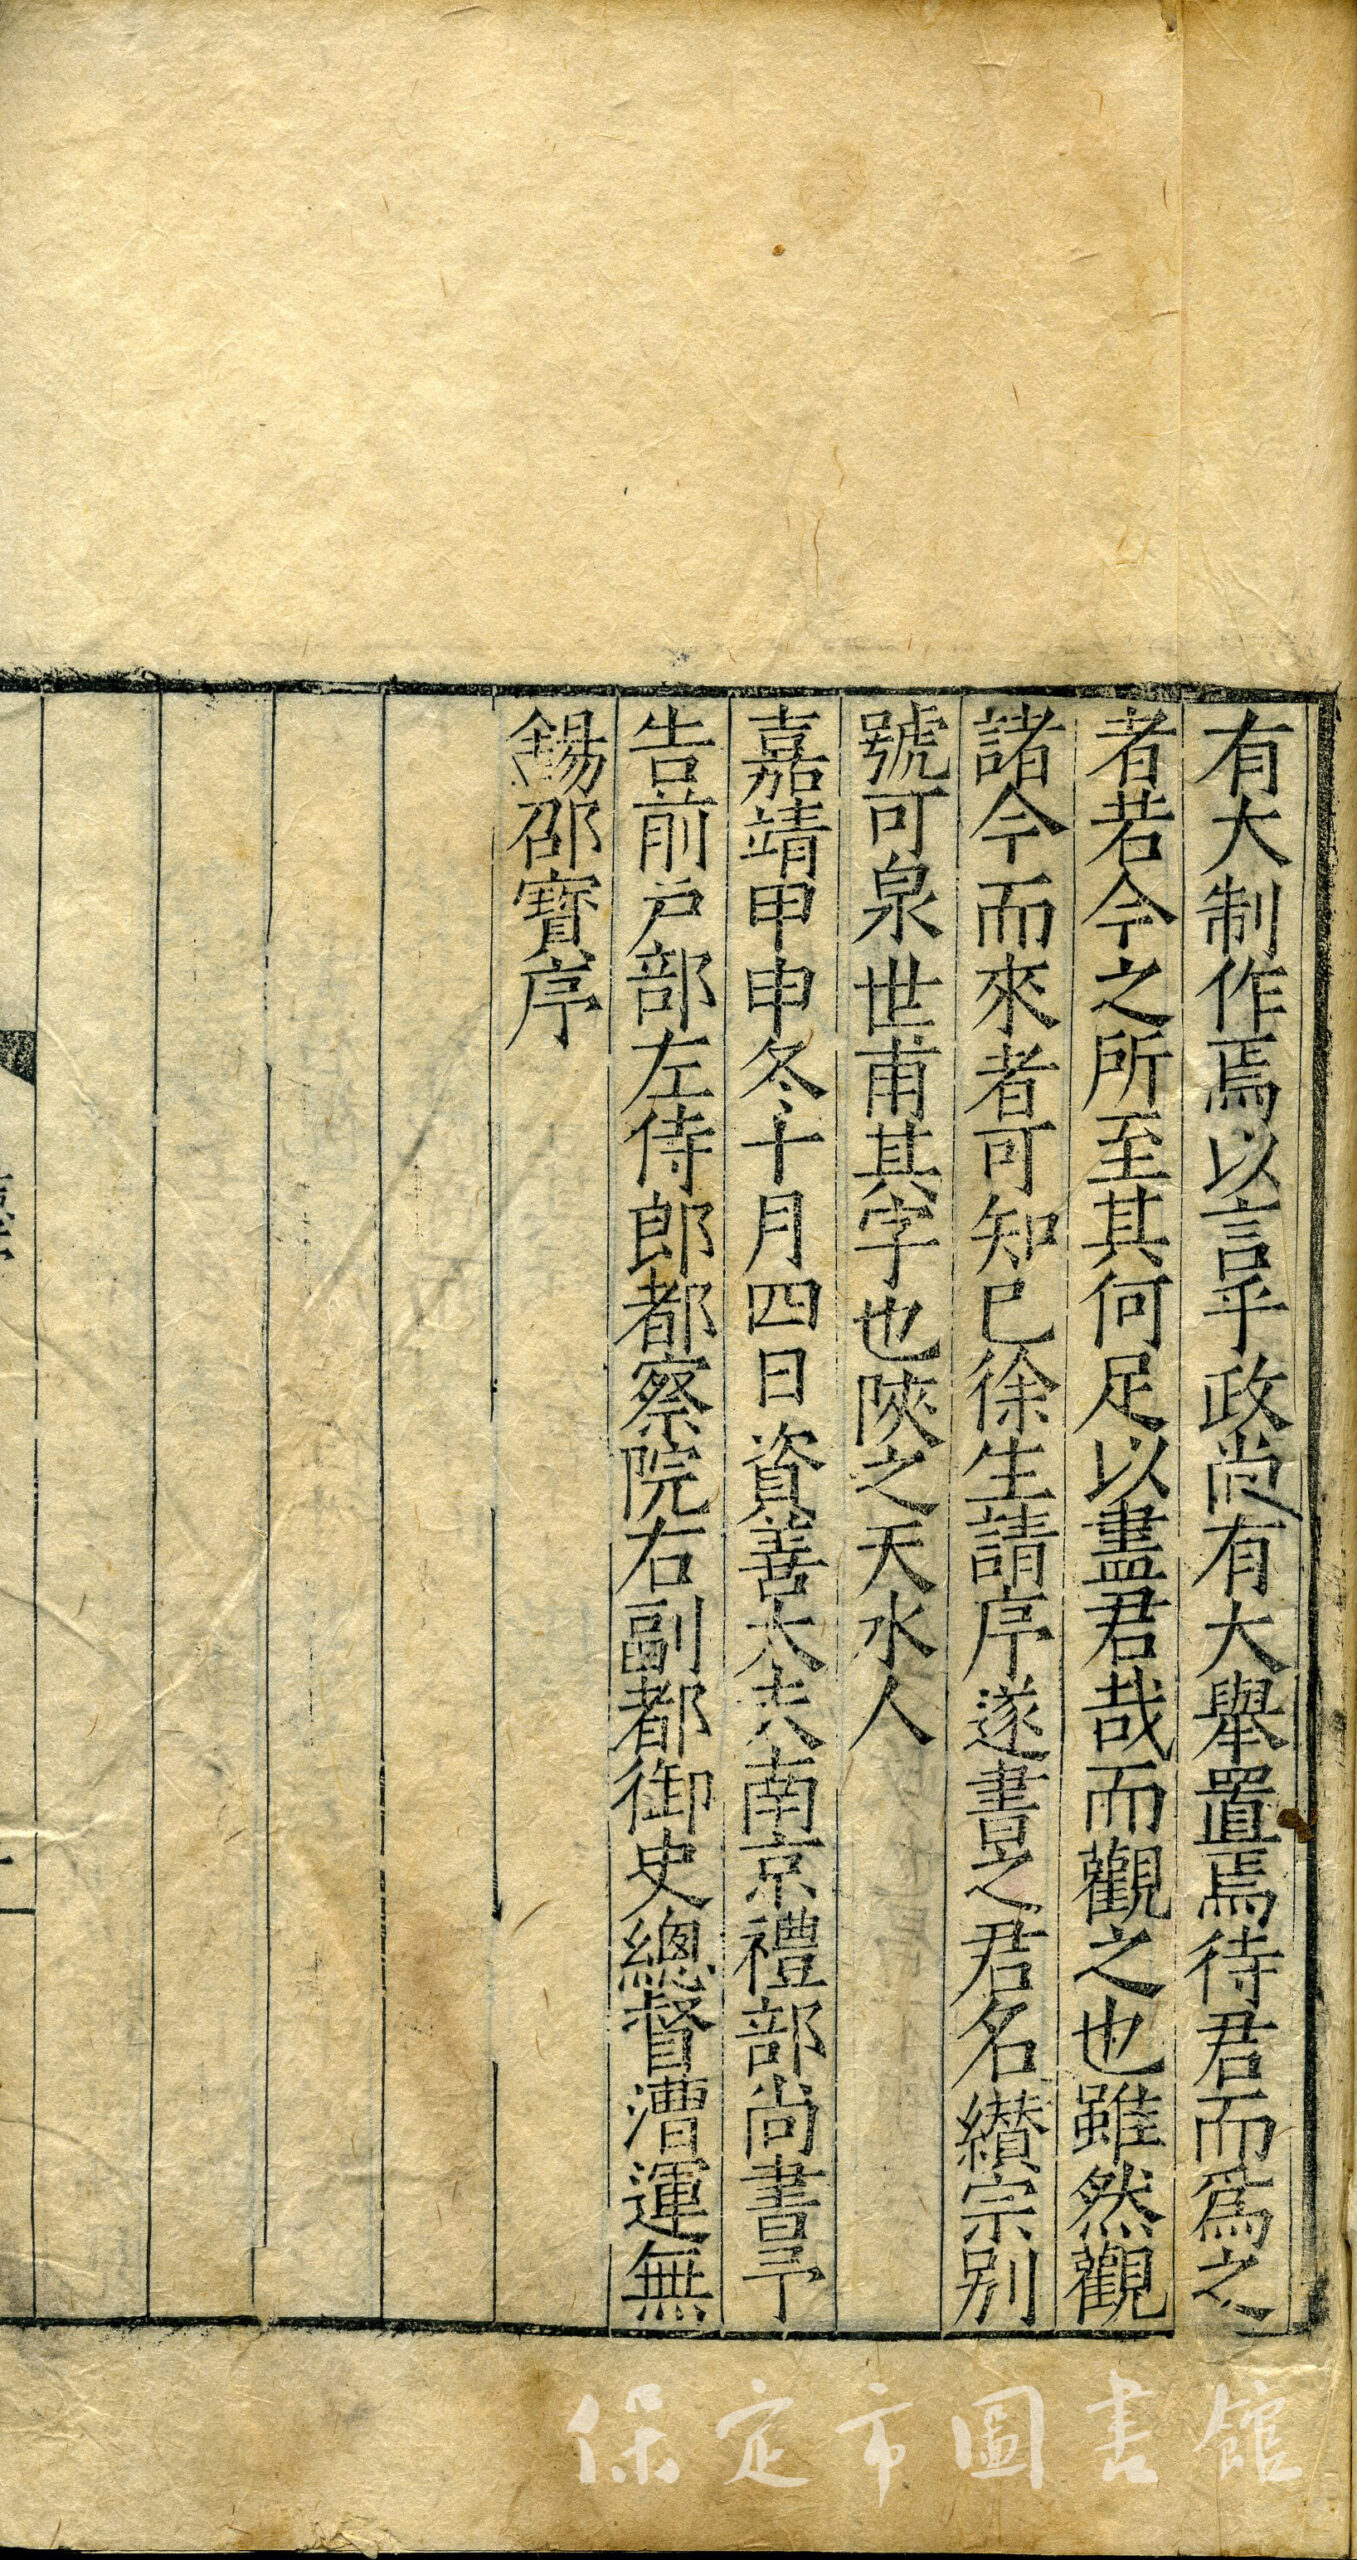 有大制作焉以言乎政尚有大舉置焉待君而爲之
者若今之所至其何足以盡君哉而觀之也雖然觀
諸今而來者可知已徐生請序遂書之君名纘宗別
號可泉世甫其字也陝之天水人
嘉靖甲申冬十月四日資善大夫南京禮部尚書予
告前戶部左侍郎都察院右副都御史總督漕運無
錫邵寶序
保定市圖書館